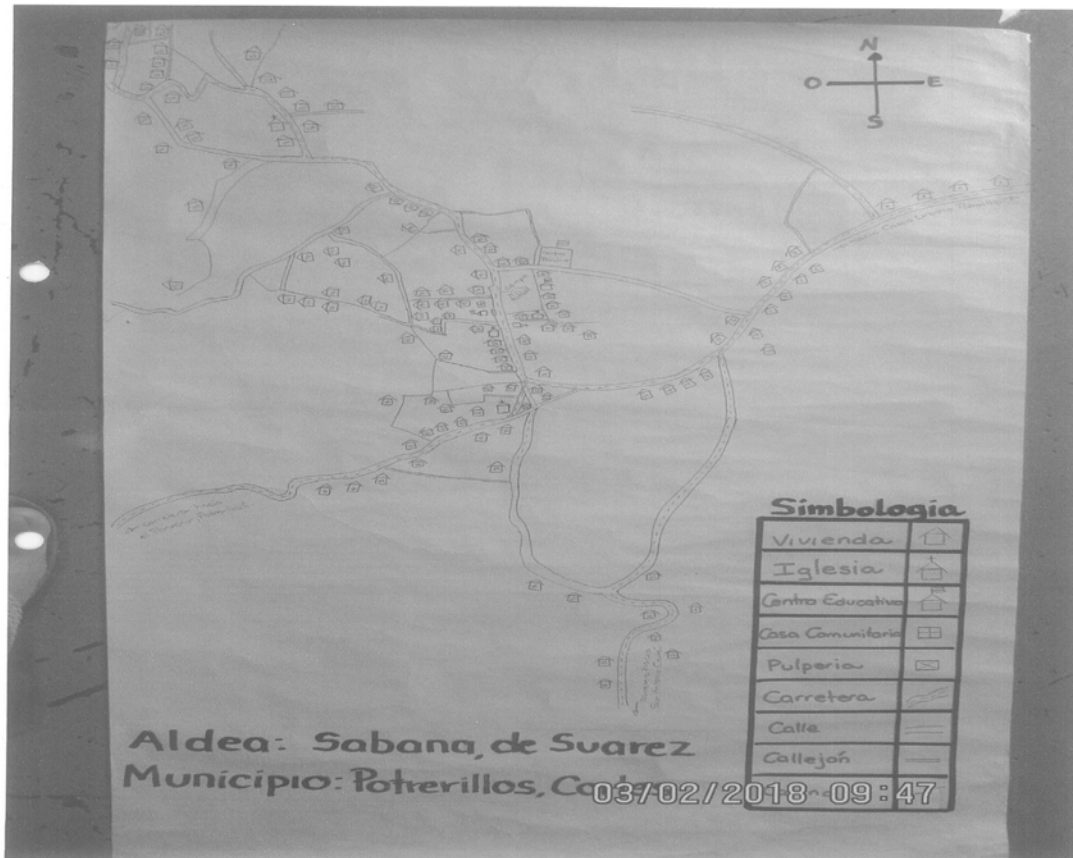 N
O E
S
Simbología
Vivienda
Iglesia
Centro Educativo
Casa Comunitaria
Pulperia
Carretera
Calle
Callejón
Aldea: Sabana, de Suarez
Municipio: Potrerillos,
03/02/2018 09:47